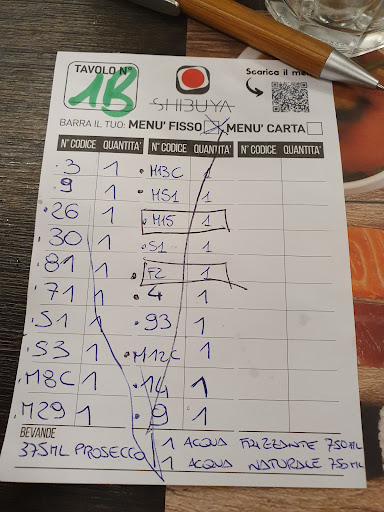 TAVOLO N°
1B
SHIBUYA
Scarica il me
BARRA IL TUO: MENU' FISSO MENU' CARTA
N° CODICE QUANTITA' N° CODICE QUANTITA' N° CODICE QUANTITA'
3 1 M3C 1
9 1 MS1 1
26 1 M15 1
30 1 S1 1
81 1 F2 1
71 1 4 1
S1 1 93 1
S3 1 M12C 1
M8C 1 14 1
M29 1 9 1
BEVANDE
375ML PROSECCO 1 ACQUA FRIZZANTE 750ML
1 ACQUA NATURALE 750ML